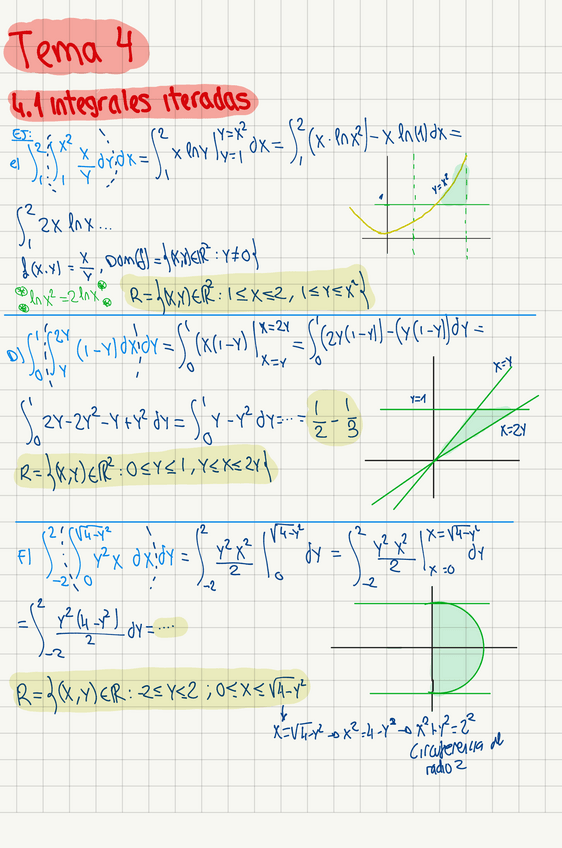 Tema 4
4.1 integrales iteradas
EJ:
e) ∫₁² ∫₁^{x²} x/y dy dx = ∫₁² x ln y |_{y=1}^{y=x²} dx = ∫₁² (x · ln x²) − x ln(1) dx =
1
y=x²
∫₁² 2x ln x ...
f(x,y) = x/y, Dom(f) = {(x,y)∈ℝ² : y≠0}
ln x² = 2 ln x
R = {(x,y)∈ℝ² : 1≤x≤2, 1≤y≤x²}
D) ∫₀¹ ∫_y^{2y} (1−y) dx dy = ∫₀¹ (x(1−y) |_{x=y}^{x=2y} = ∫₀¹ (2y(1−y)) − (y(1−y)) dy =
x=y
y=1
x=2y
∫₀¹ 2y − 2y² − y + y² dy = ∫₀¹ y − y² dy = ... = 1/2 − 1/3
R = {(x,y)∈ℝ² : 0≤y≤1, y≤x≤2y}
F) ∫₋₂² ∫₀^{√4−y²} y²x dx dy = ∫₋₂² y²x²/2 |₀^{√4−y²} dy = ∫₋₂² y²x²/2 |_{x=0}^{x=√4−y²} dy
= ∫₋₂² y²(4−y²)/2 dy = ....
R = {(x,y)∈ℝ : -2≤y≤2 ; 0≤x≤√4−y²
x=√4−y² → x²=4−y² → x²+y²=2²
Circuferencia de
radio 2